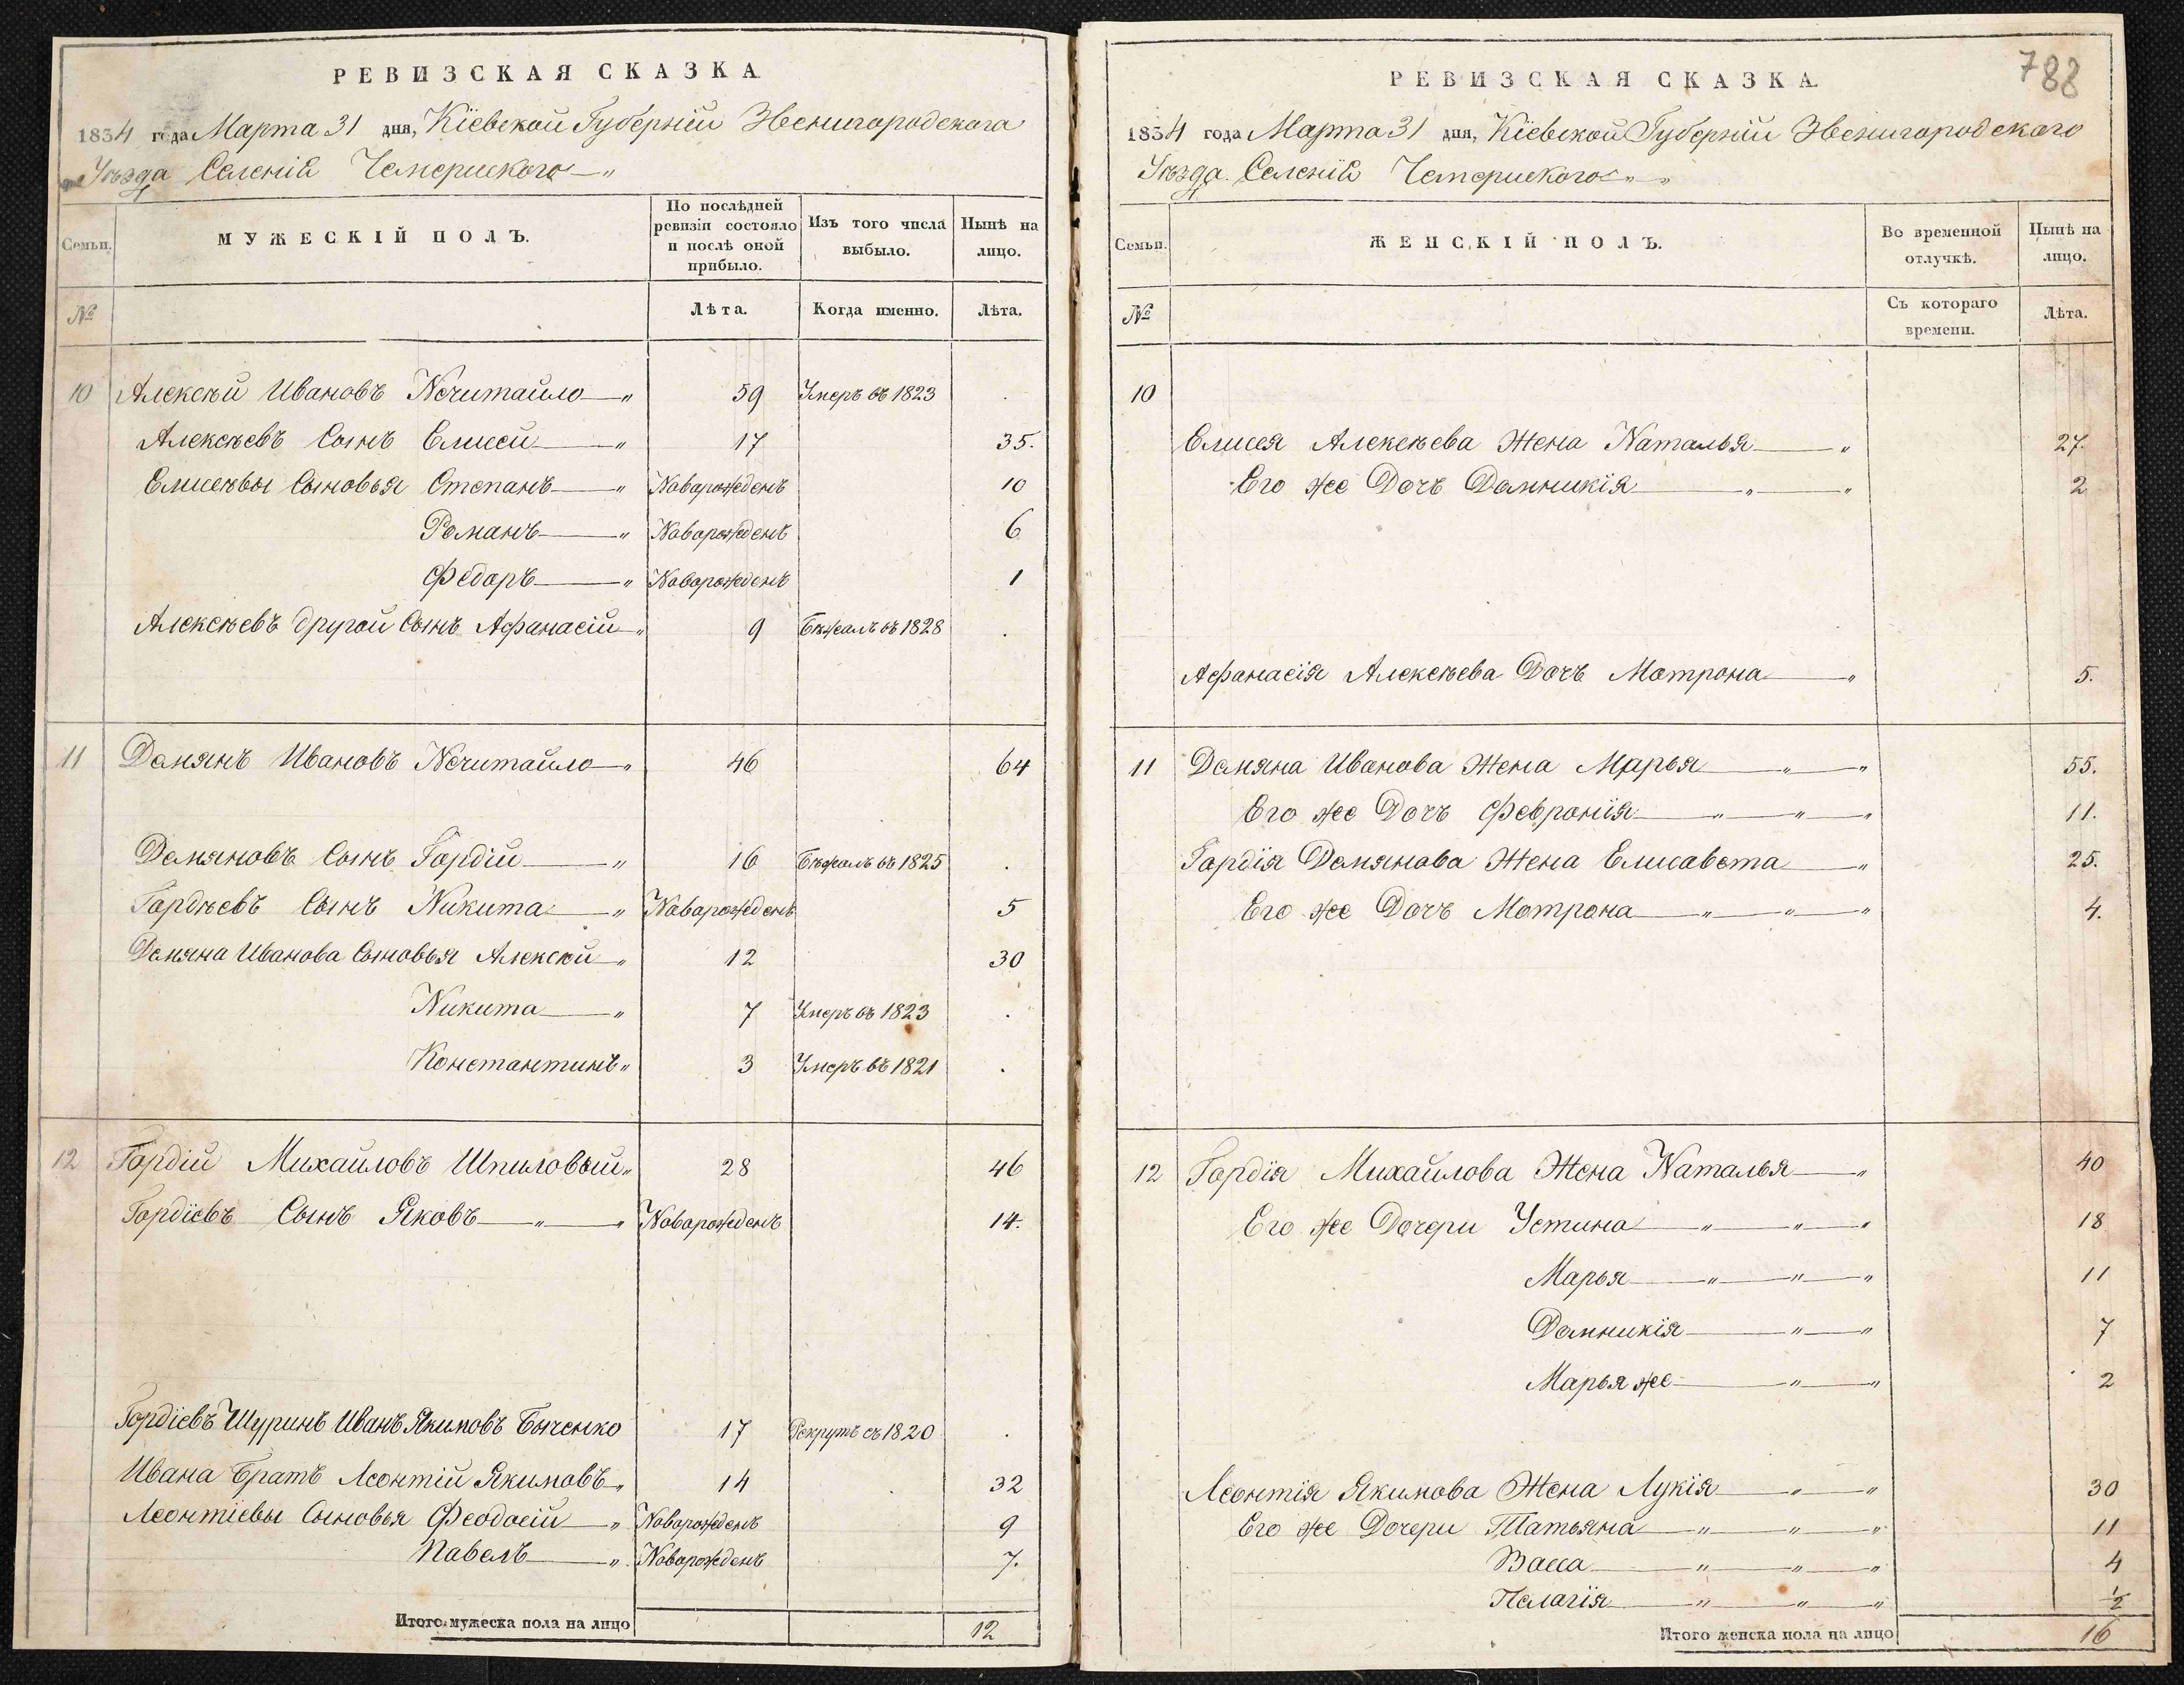 РЕВИЗСКАЯ СКАЗКА
1834 года Марта 31 дня, Кіевской Губерніи Звенигородскаго
Уѣзда Селенія Чемерискаго
Семьи.
МУЖЕСКІЙ ПОЛЪ.
По послѣдней ревизіи состояло и послѣ оной прибыло.
Изъ того числа выбыло.
Нынѣ на лицо.
№
Лѣта.
Когда именно.
Лѣта.
10 Алексѣй Ивановъ Нечитайло 59 Умеръ въ 1823
Алексѣевъ Сынъ Елисей 17 35.
Елисѣевы Сыновья Степанъ Новорожденъ 10
Романъ Новорожденъ 6
Федоръ Новорожденъ 1
Алексѣевъ другой Сынъ Афанасій 9 Бѣжалъ въ 1828
11 Демянъ Ивановъ Нечитайло 46 64
Демяновъ Сынъ Гордій 16 Бѣжалъ въ 1825
Гордѣевъ Сынъ Никита Новорожденъ 5
Демяна Иванова Сыновья Алексѣй 12 30
Никита 7 Умеръ въ 1823
Константинъ 3 Умеръ въ 1821
12 Гордій Михайловъ Шпиловый 28 46
Гордіевъ Сынъ Яковъ Новорожденъ 14.
Гордіевъ Шуринъ Иванъ Якимовъ Бученко 17 Рекрутъ съ 1820
Ивана Братъ Леонтій Якимовъ 14 32
Леонтіевы Сыновья Феодосій Новорожденъ 9
Павелъ Новорожденъ 7.
Итого мужеска пола на лицо 12
788
РЕВИЗСКАЯ СКАЗКА
1834 года Марта 31 дня, Кіевской Губерніи Звенигородскаго
Уѣзда Селенія Чемерискаго
Семьи.
ЖЕНСКІЙ ПОЛЪ.
Во временной отлучкѣ.
Нынѣ на лицо.
№
Съ котораго времени.
Лѣта.
10
Елисея Алексѣева Жена Наталья 27.
Его же Дочъ Домникія 2
Афанасія Алексѣева Дочъ Мотрона 5.
11 Демяна Иванова Жена Марья 55.
Его же Дочъ Февронія 11.
Гордія Демянова Жена Елисавета 25.
Его же Дочъ Мотрона 4.
12 Гордія Михайлова Жена Наталья 40
Его же Дочери Устина 18
Марья 11
Домникія 7
Марья же 2
Леонтія Якимова Жена Лукія 30
Его же Дочери Татьяна 11
Васса 4
Пелагія 1/2
Итого женска пола на лицо 16